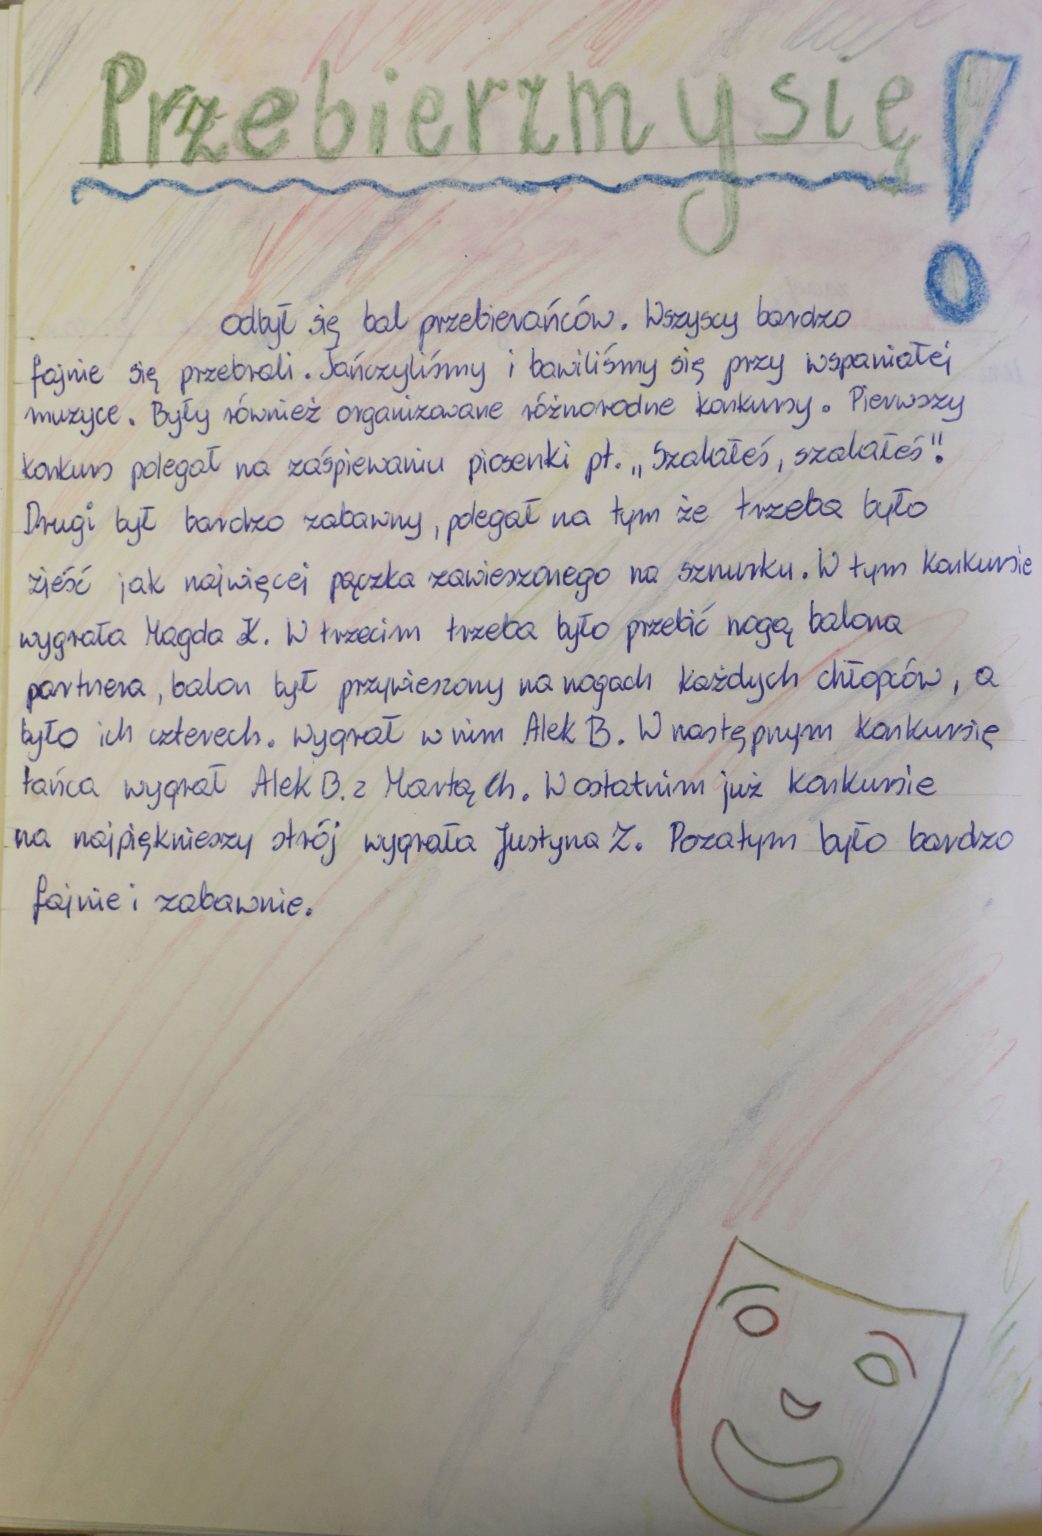 Przebierzmy się!
odbył się bal przebierańców. Wszyscy bardzo
fajnie się przebrali. Tańczyliśmy i bawiliśmy się przy wspaniałej
muzyce. Były również organizowane różnorodne konkursy. Pierwszy
konkurs polegał na zaśpiewaniu piosenki pt. „Szalałeś, szalałeś".
Drugi był bardzo zabawny, polegał na tym że trzeba było
zjeść jak najwięcej pączka zawieszonego na sznurku. W tym konkursie
wygrała Magda K. W trzecim trzeba było przebić nogą balona
partnera, balon był przywieszony na nogach każdych chłopców, a
było ich czterech. wygrał w nim Alek B. W następnym konkursię
tańca wygrał Alek B. z Martą Ch. W ostatnim już konkursie
na najpiękniejszy strój wygrała Justyna Z. Pozatym było bardzo
fajnie i zabawnie.